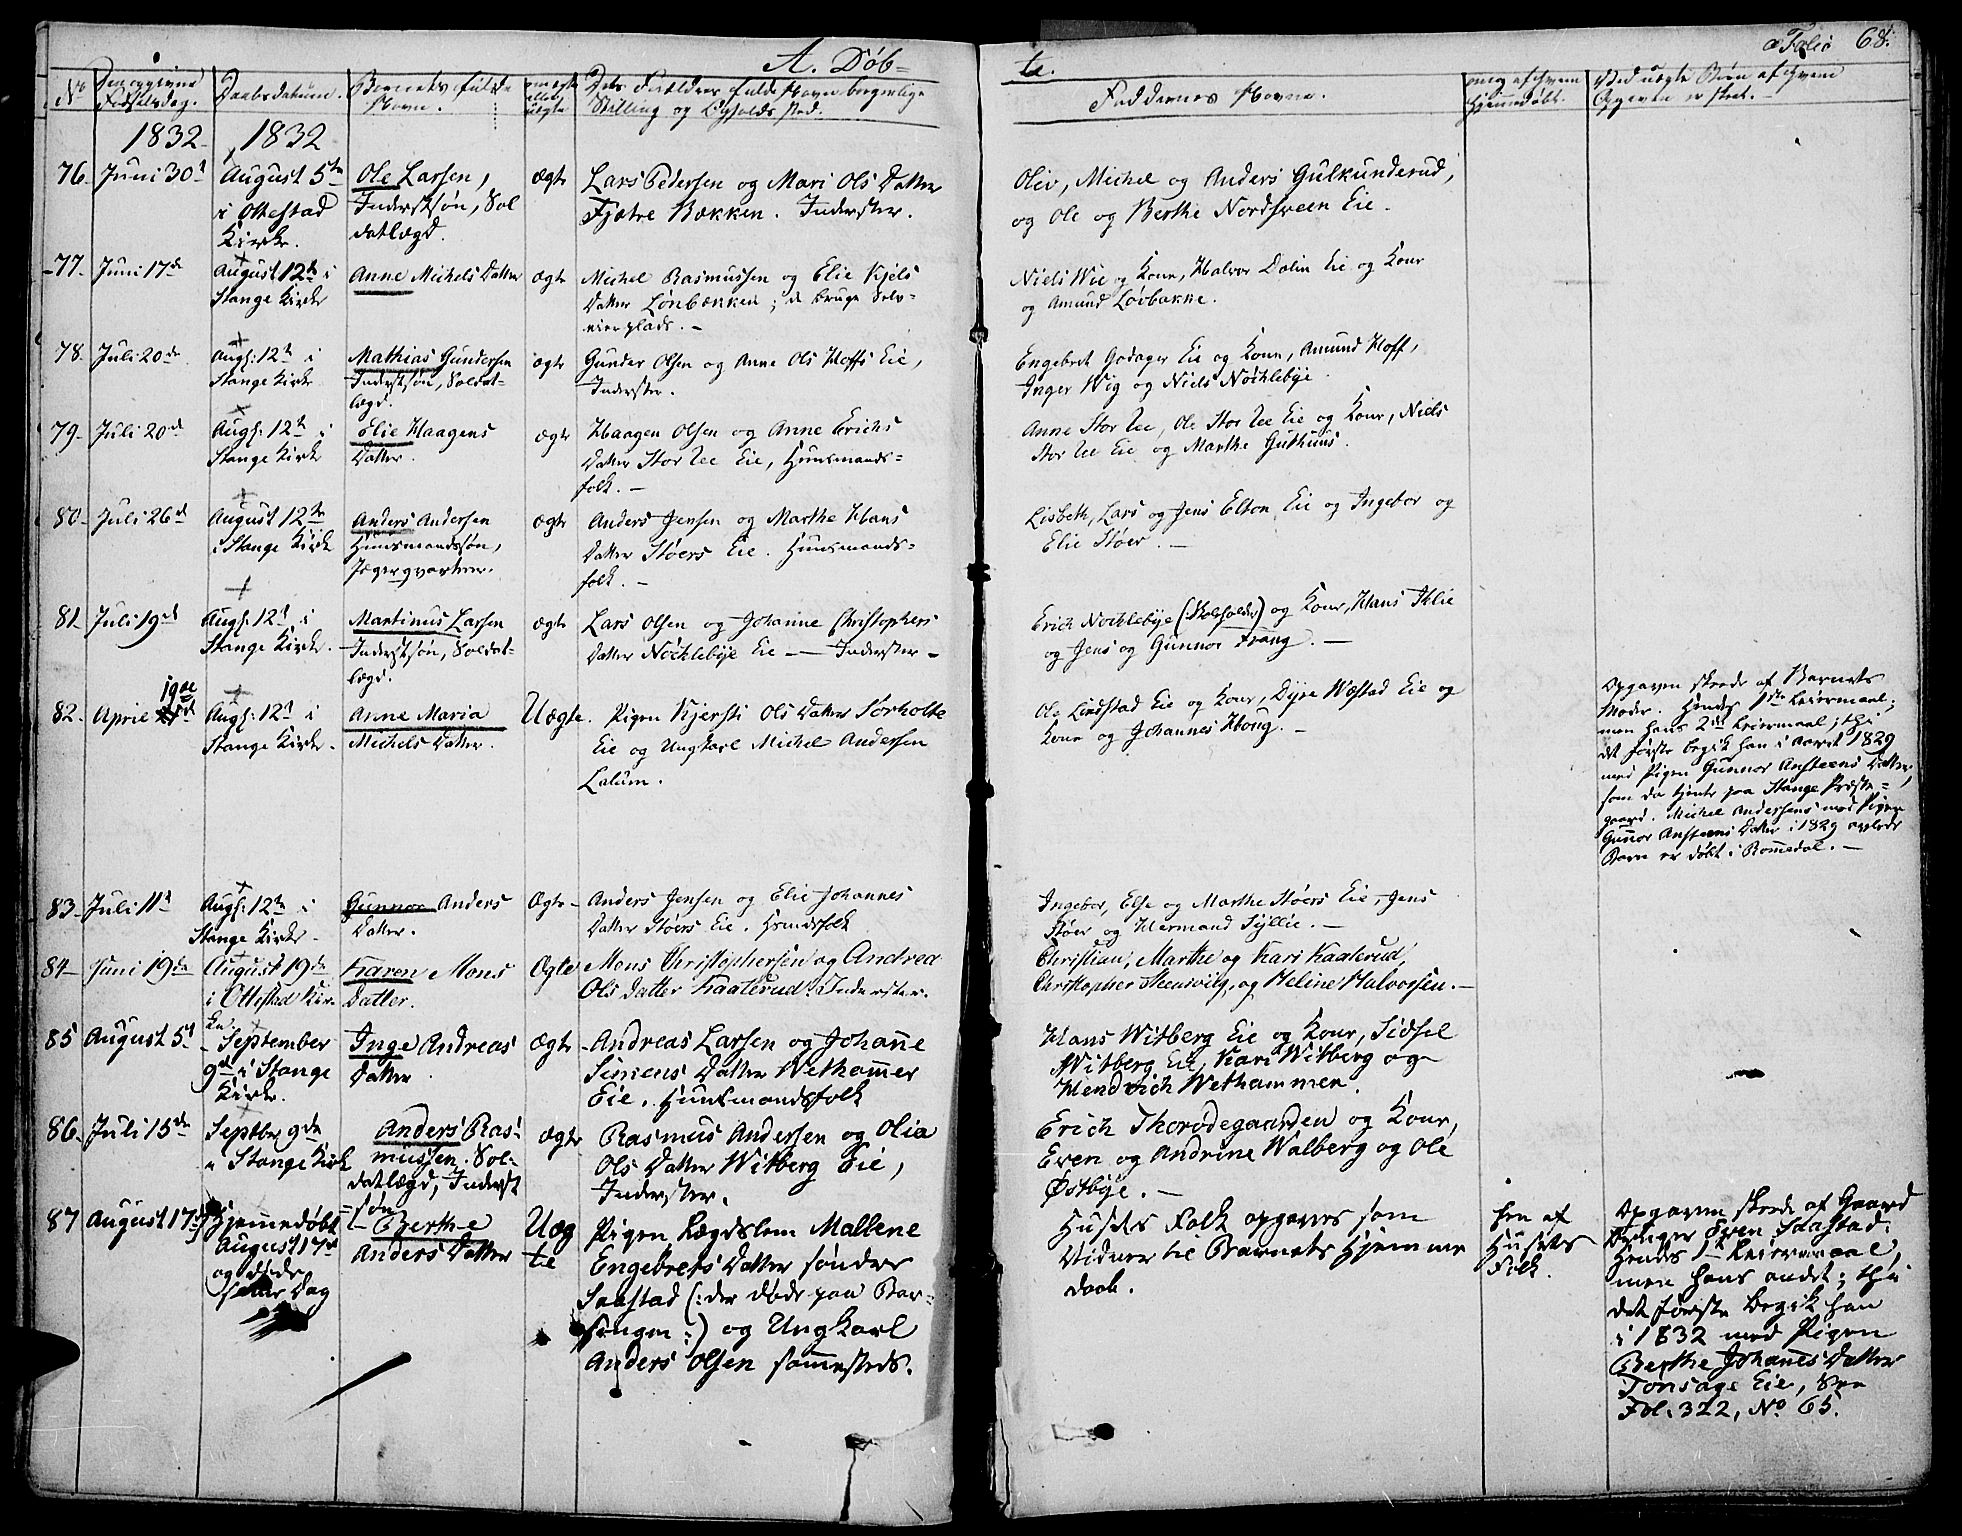 A. Døb=
te.
a Folio 68.
No
Den opgivne Fødselsdag.
Daabsdatum.
Barnets fulde Navn.
om ægte eller uægte
Dets Forældres fulde Navn borgerlige Stilling og Opholds sted.
Faddernes Navne.
om og af hvem hjemmedøbt.
Ved uægte Børn af hvem Opgaven er skeet.
1832 1832
76. Juni 30
August 5te
i Ottestad
Kirke.
Ole Larsen,
Inderstsøn, Sol
datlægd.
ægte
Lars Pedersen og Mari Ols Datter
Fjætre Bækken. Inderster.
Oliv, Michel og Anders Gulkunderud,
og Ole og Berthe Nordsveen Eie.
77. Juni 17de
August 12te i
Stange Kirke
Anne Michels Datter
ægte
Michel Rasmussen og Elie Kjels
Datter Lønbækken; de bruge Selv=
eierplads. —
Niels Wie og Kone, Halvor Dalin Eie og Kone
og Amund Løvbakke.
78. Juli 20de
Augs: 12te i
Stange Kirke
Mathias Gundersen
Inderstsøn, Soldat=
lægd.
ægte
Gunder Olsen og Anne Ols Hoffs Eie,
Inderster.
Engebret Godager Eie og Kone, Amund Hoff,
Inger Wig og Niels Nøchlebye.
79. Juli 20de
Augs: 12te i
Stange Kirke
Elie Haagens
Datter.
ægte
Haagen Olsen og Anne Erichs
Datter Stor Ree Eie, Huusmands=
folk. —
Anne Stor Ree, Ole Stor Ree Eie og Kone, Niels
Stor Ree Eie og Marthe Guthuus.
80. Juli 26de
August 12te
i Stange Kirke
Anders Andersen
Huusmandssøn,
Jægerqvarteer.
ægte
Anders Jensen og Marthe Hans
Datter Støers Eie. Huusmands=
folk. —
Lisbeth, Lars og Jens Elton Eie og Ingebor og
Elie Støer. —
81. Juli 19de
Augs: 12te i
Stange Kirke.
Martinus Larsen
Inderstsøn, Soldat=
lægd.
ægte
Lars Olsen og Johanne Christophers
Datter Nøchlebye Eie — Inderster —
Erich Nøchlebye (Skoleholder) og Kone, Hans Thlie
og Jens og Gunnor Frang. —
82. April 19de
Augs: 12te i
Stange Kirke.
Anne Maria
Michels Datter.
Uægte.
Pigen Kjersti Ols Datter Sørholte
Eie og Ungkarl Michel Andersen
Lalum.
Ole Lindstad Eie og Kone, Dyre Wæstad Eie og
Kone og Johannes Houg. —
Opgaven skeede af Barnets
Moder. Hendes 1ste Leiermaal;
men hans 2det Leiermaal; thi
det første begik han i Aaret 1829
med Pigen Gunnor Ansteens Datter,
som da tjente paa Stange Præste=
gaard. Michel Andersens med Pigen
Gunnor Ansteens Datter i 1829 avlede
Barn er døbt i Romedal. —
83. Juli 11te
Augs: 12te i
Stange Kirke.
Gunnor Anders
Datter.
Ægte
Anders Jensen og Elie Johannes
Datter Støers Eie. Huusfolk
Ingebor, Else og Marthe Støers Eie, Jens
Støer og Hermand Syllie. —
84. Juni 19de
August 19de
i Ottestad Kir=
ke.
Karen Mons
Datter.
Ægte
Mons Christophersen og Andrea
Ols datter Kaaterud. Inderster.
Christian, Marthe og Kari Kaaterud,
Christopher Steensvig, og Heline Halvorsen. —
85 August 5te
September
9de i Stange
Kirke.
Inge Andreas
Datter
ægte
Andreas Larsen og Johanne
Simens Datter Wethammer
Eie. Huusmandsfolk
Hans Witberg Eie og Kone, Sidsel
Witberg Eie, Kari Witberg og
Hendrich Wethammer.
86. Juli 15de
Septber 9de
i Stange Kirke
Anders Ras=
mussen. Sol=
datlægd, Inderst
=søn
ægte
Rasmus Andersen og Olia
Ols Datter Witberg Eie,
Inderster.
Erich Thorødegaarden og Kone,
Even og Andrine Walberg og Ole
Østbye. —
87 August 17de
Hjemmedøbt
August 17de
og døde
samme Dag
Berthe
Anders Datter
Uæg
te
Pigen Lægdslem Mallene
Engebrets Datter søndre
Saastad (: der døde paa Bar=
selsengen :) og Ungkarl
Anders Olsen sammesteds.
Husets Folk opgaves som
Vidner til Barnets Hjemme
daab.
hun af
Husets
Folk.
Opgaven skeede af Gaard
bruger Even Saastad.
Hendes 1ste Leiermaal,
men hans andet; thi
det første begik han
i 1832 med Pigen
Berthe Johannes Datter
Tonsage Eie, See
Fol. 322, No 65.